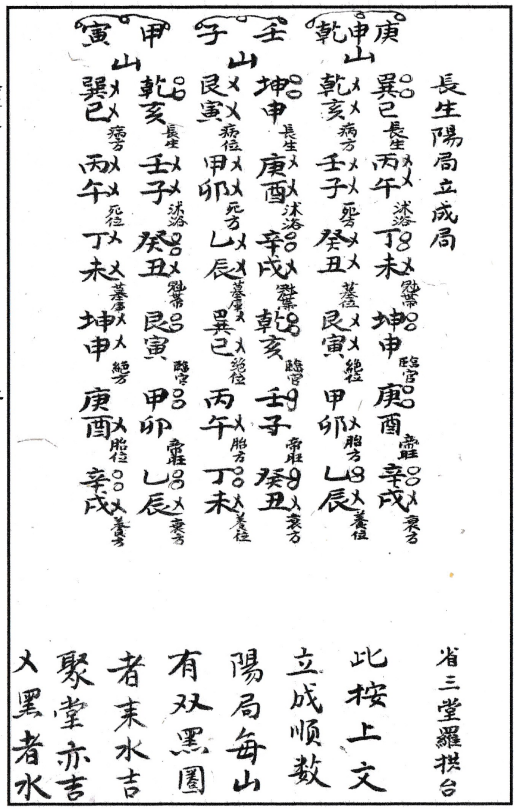 長生陽局立成局
庚申乾山
巽巳長生丙午沐浴丁未冠帶坤申臨官庚酉帝旺辛戌衰方
乾亥病方壬子死方癸丑墓位艮寅絕位甲卯胎方乙辰養位
壬子山
坤申長生庚酉沐浴辛戌冠帶乾亥臨官壬子帝旺癸丑衰方
艮寅病位甲卯死方乙辰墓庫巽巳絕位丙午胎方丁未養位
甲寅山
乾亥長生壬子沐浴癸丑冠帶艮寅臨官甲卯帝旺乙辰衰方
巽巳病方丙午死位丁未墓庫坤申絕方庚酉胎位辛戌養方
省三堂羅拱台
此按上文
立成順数
陽局每山
有双黑圈
者来水吉
聚堂亦吉
乂黑者水